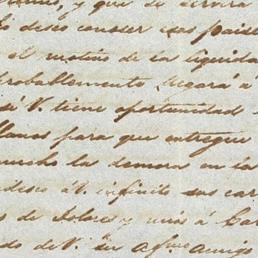 y que se servirá
deseo conocer esos paises
el motivo de la liquida
probablemente, llegará á
si V. tiene oportunidad
llanos para que entregue
mucho la demora en las
á V. infinito sus car
de Dolores y unis á Car
do de V. su af.mo amigo